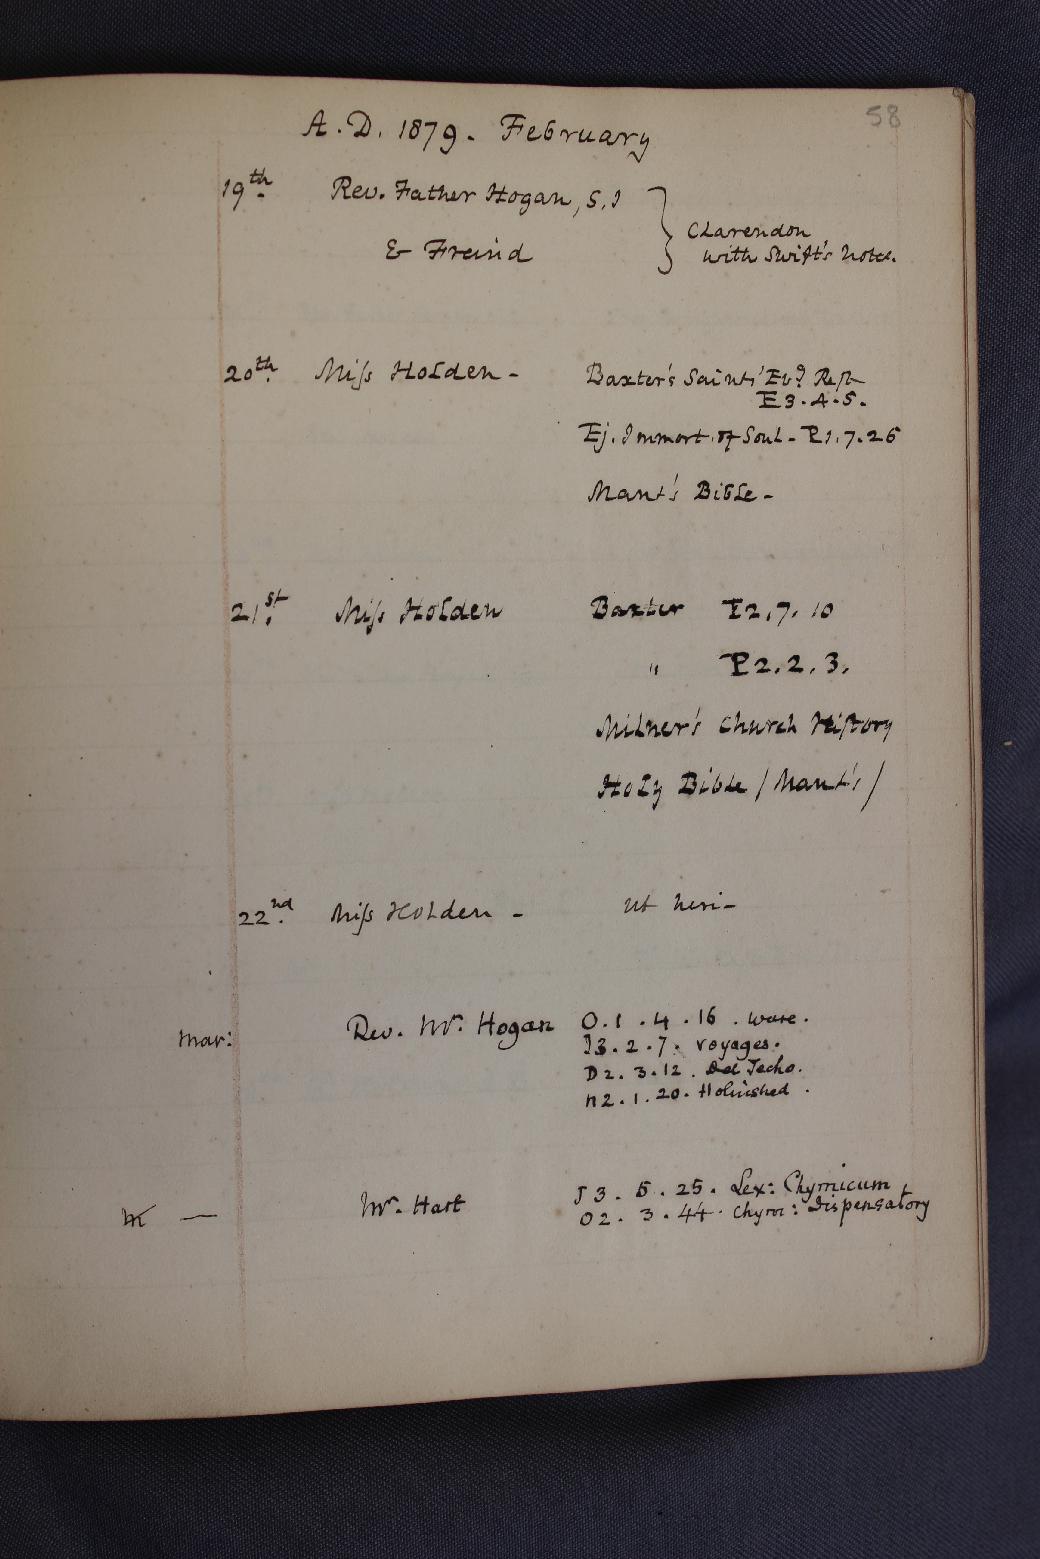 58
A.D. 1879. February
19th Rev. Father Hogan, S.J
& Freind } Clarendon
with Swift's notes.
20th Miss Holden - Baxter's Saints' Evd Rest
E3.4.5.
Ej. Immort. of Soul - P1.7.26
Mant's Bible -
21st Miss Holden Baxter I2.7.10
" P2.2.3.
Milner's Church History
Holy Bible / Mant's /
22nd Miss Holden - ut heri -
Mar: Rev. Mr. Hogan O.1.4.16. Ware.
I3.2.7. Voyages.
D2.3.12. Del Techo.
N2.1.20. Holinshed.
M — Mr. Hart J3.5.25. Lex: Chymicum
O2.3.44. Chym: Dispensatory